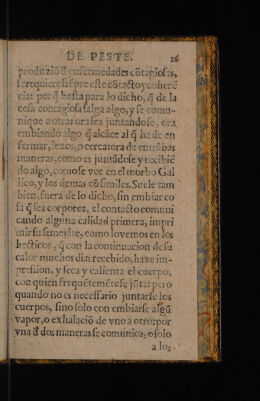 DE PESTE. 26
produziõ đ enfermedades cõtagiosas,
se requiere siẽpre este cõtacto y coherẽ
cia: porq̃ basta para lo dicho, q̃ de la
cosa contagiosa salga algo, y se comu-
nique a otra: ora sea juntandose, ora
embiando algo q̃ alcãce al q̃ ha de en
fermar, lexos, o cerca: ora de entrãbas
maneras, como es juntãdose y recibiẽ
do algo, como se vee en el morbo Gal
lico, y los demas cõsimiles. Suele tam
bien, fuera de lo dicho, sin embiar co
sa q̃ sea corporea, el contacto comuni
cando alguna calidad primera, impri
mir su semejãte, como lo vemos en los
hecticos, q̃ con la continuacion de su
calor muchos dias recebido, haze im-
pression, y seca y calienta el cuerpo,
con quien frequẽtemẽte se jũta: pero
quando no es necessario juntarse los
cuerpos, sino solo con embiarse algũ
vapor, o exhalaciõ de vno a otro: por
vna đ dos maneras se comunica, o solo
a los